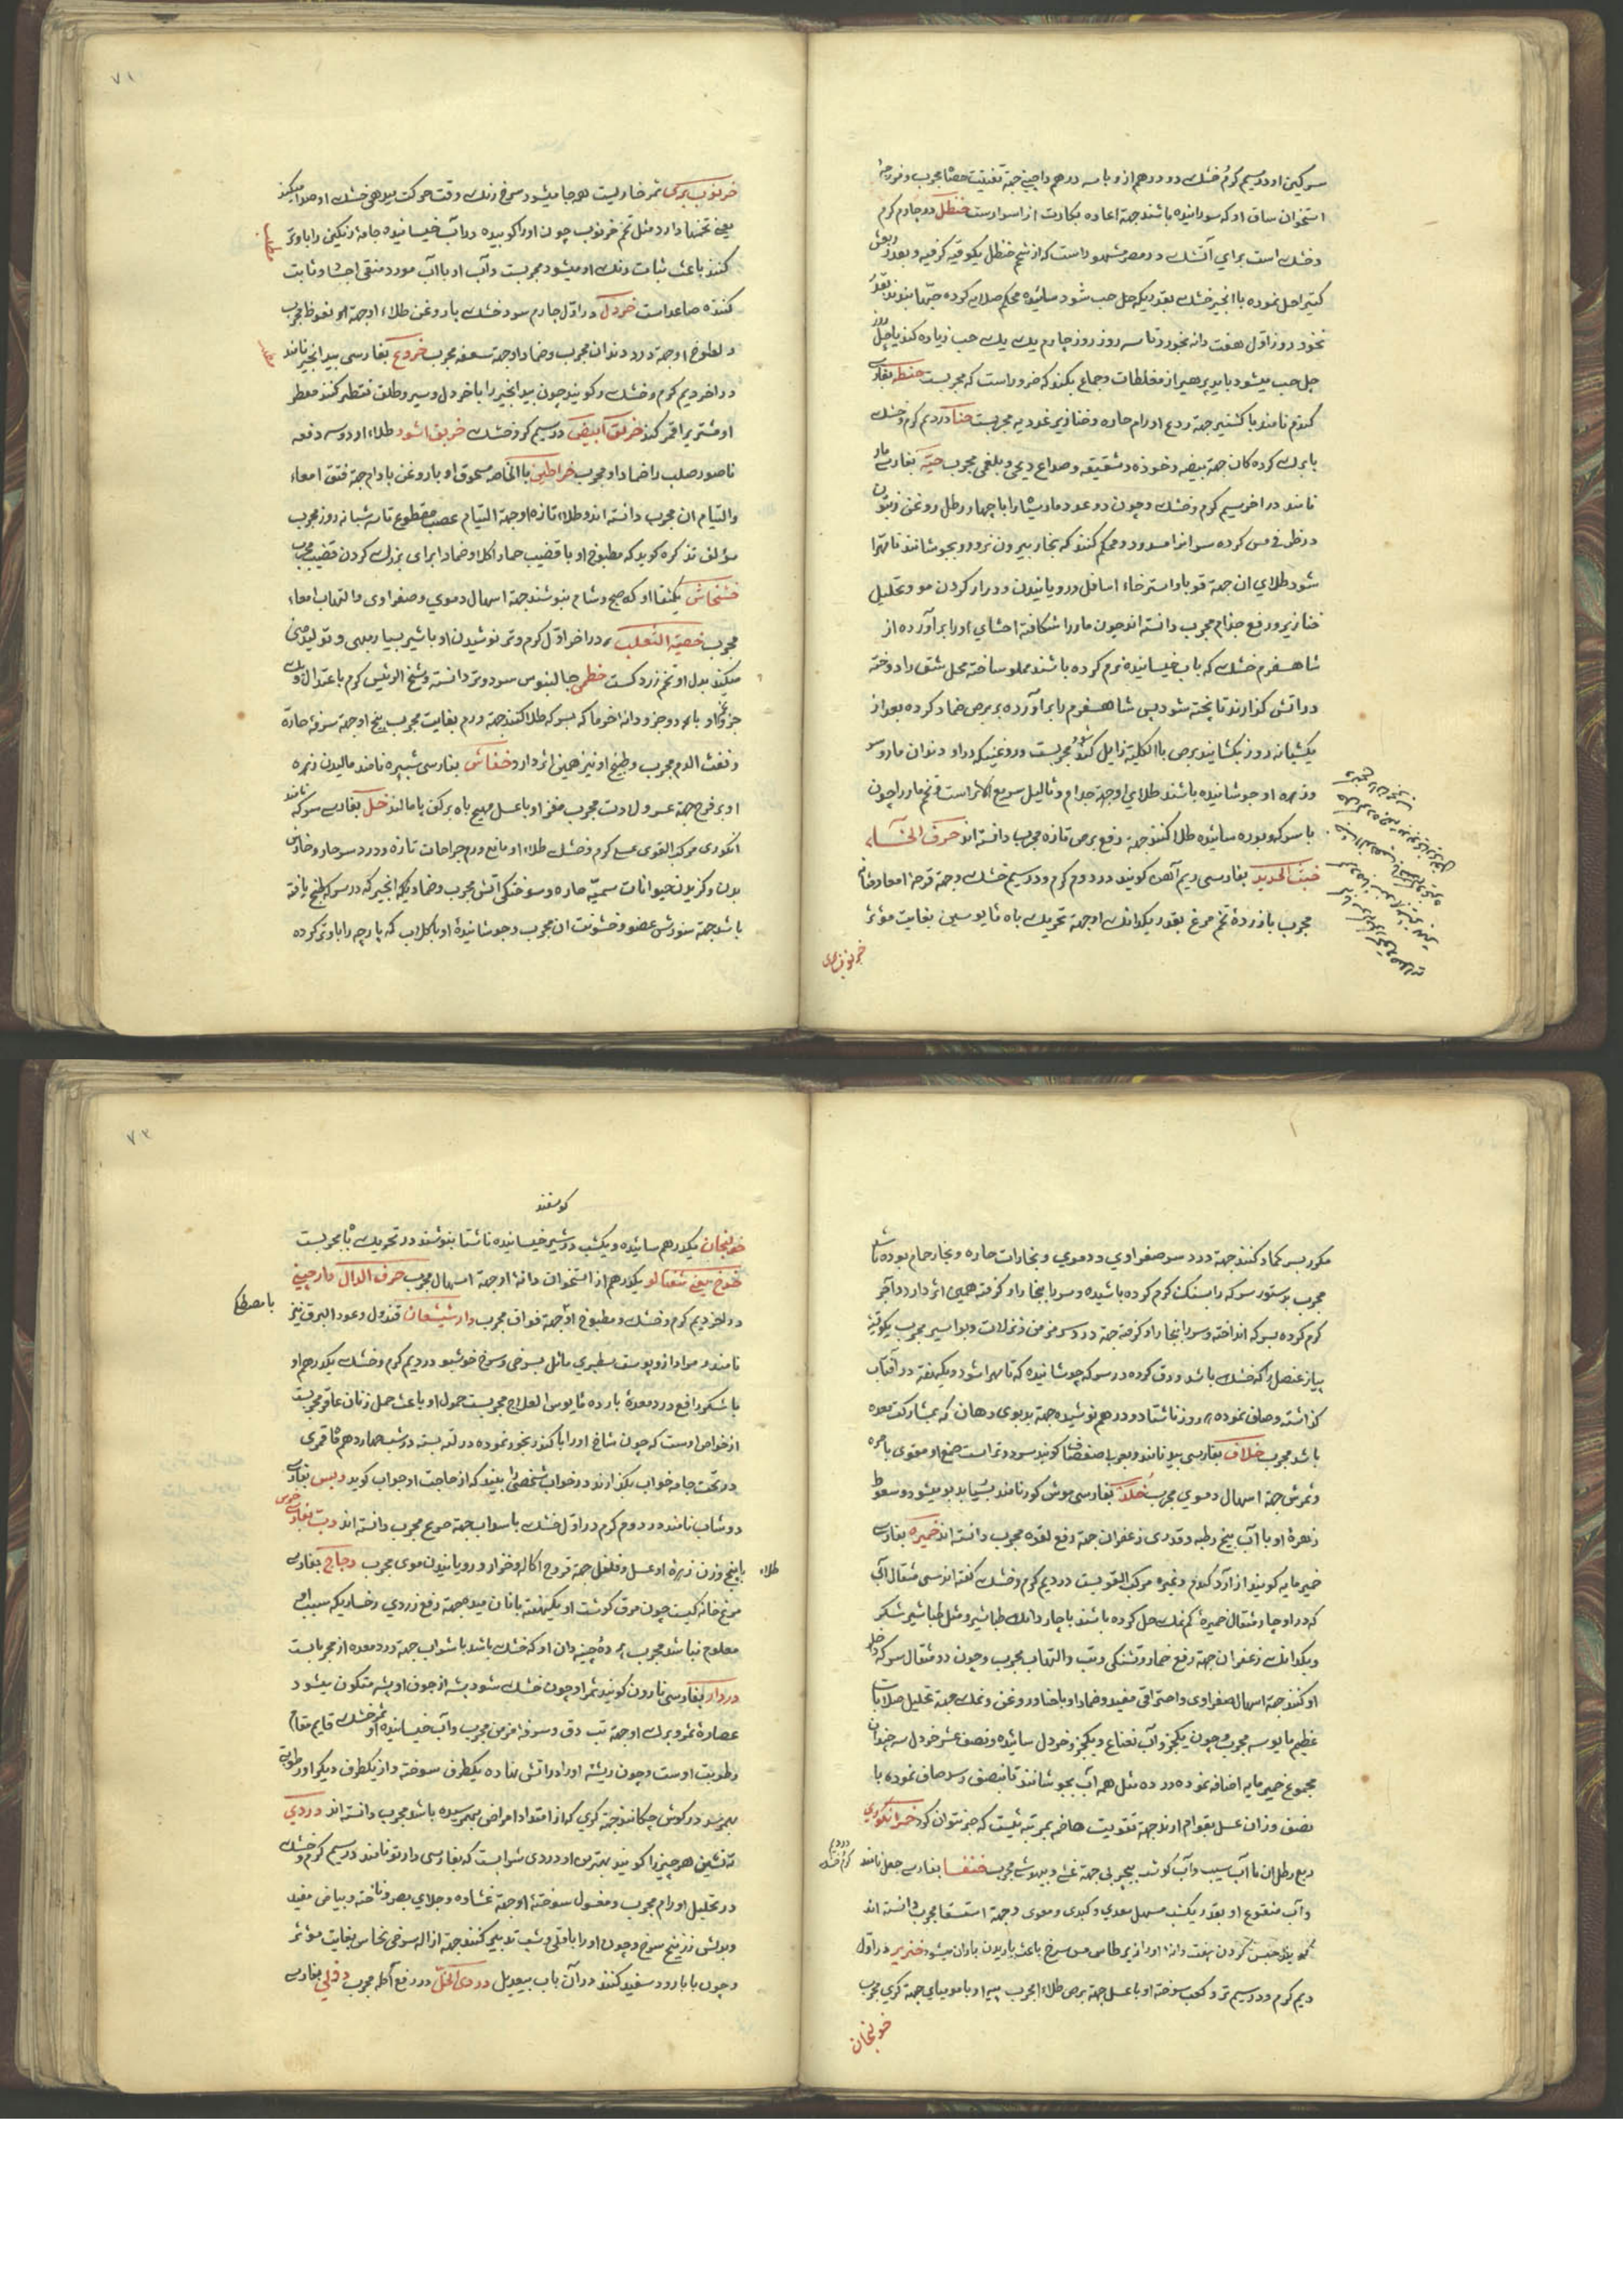 سرکین او در سیم کرم خشک دو درهم از و با سه درهم دارچینی جهة تفتیت حصاة مجرب و
استخوان ساق او که سوزانیده باشند جهة اعاده بکارت از اسرارست حنظل در چارم کرم
و خشک است برای آتشک در مصر مشهور است که از شحم حنظل یکوقیه کرفته و بعد از
کتیرا حل نموده با انجیر خشک بقدریکه حل حب شود سائیده محکم صلایه کرده حبها بقدر
نخود روز اول هفت دانه بخورد تا سه روز روز چارم یک یک حب زیاده کند تا چهل روز
چل حب میشود باید پرهیز از مغلظات و جماع بکند که ضرور است که مجربست حنطه بفارسی
کندم نامند با کشنیز جهة ردع اورام حاره و خنازیر غددیه مجربست حنا در دیم کرم و خشک
با برک کرده کان جهة بیضه و خوذه و شقیقه و صداع ریحی و بلغمی مجرب حیّة بفارسی مار
نامند در اخر سیم کرم و خشک و چون دو عدد مار سیاه را با چهار رطل روغن زیتون
در ظرف مس کرده سر انرا مسدود و محکم کنند که بخار بیرون نرود و بجوشانند تا مهرا
شود طلای ان جهة قوبا و استرخاء اسافل و رویانیدن و دراز کردن مو و تحلیل
خنازیر و رفع جذام مجرب دانسته اند چون مار را شکافته احشای او را برآورده از
شاهسفرم خشک که باب خیسانیده نرم کرده باشند مملو ساخته محل شق را دوخته
در آتش کذارند تا پخته شود پس شاهسفرم را برآورده بر برص ضماد کرده بعد از
یکشبانه روز بکشایند برص بالکلیة زایل کند مجربست و روغنیکه در او دندان مار و سر
و زهره او جوشانیده باشند طلای او جهة جذام و ثالیل سریع الاثر است و تخم مار را چون
با سرکه و بوره سائیده طلا کنند جهة رفع برص تازه مجرب دانسته اند حرف الخاء
خبث الحدید بفارسی ریم آهن کویند در دوم کرم و در سیم خشک و جهة قرحه امعا و
مجرب با زردهٔ تخم مرغ بقدر یکدانک او جهة تحریک باه مایوسین بغایت مؤثر
خرنوب بری
۷۱
خرنوب بری ثمر خاریست هر جا میشود سرخ رنک وقت حرکت بیدهی خشک او صدا میکند
یعنی تخمها دارد مثل تخم خرنوب چون او را کوبیده در آب خیسانیده جامهٔ رنکین را باو تر
کنند باعث ثبات رنک او میشود مجربست و آب او با آب مورد منقی احشا و ثابت
کننده صاعد است خردل در اول چارم سود خشک با روغن طلاء او جهة نعوظ مجرب
و لطوخ او جهة درد دندان مجرب و ضماد او جهة سعفه مجرب خروع بفارسی بید انجیر نامند
در اخر دیم کرم و خشک و کویند چون بید انجیر را با خردل و سیر و طلق تقطیر کنند مقطر
او مشتری را قمر کند خربق ابیض در سیم کرم و خشک خربق اسود طلاء او در سه دفعه
ناصور صلب را ضماد او مجرب خراطین بالخاصه مسحوق او با روغن بادام جهة فتق امعاء
و التیام ان مجرب دانسته اند و طلاء تازه او جهة التیام عصب مقطوع تا سه شبانه روز مجرب
مؤلف تذکره کوید که مطبوخ او با قضیب حمار اکلا و ضمادا برای بزرک کردن قضیب مجرب
خشخاش یکتفا او که صبح و شام بنوشند جهة اسهال دموی و صفراوی و التهاب امعاء
مجرب خصیة الثعلب در اخر اول کرم و تر نوشیدن او با شیر بسیار مبهی و تولید منی
میکند بدل او تخم زردکست خطمی جالینوس سرد و تر دانسته و شیخ الرئیس کرم باعتدال
جزو او با دو جزو دانه خرما که بسرکه طلا کنند جهة ورم بغایت مجرب بیخ او جهة سرفهٔ حارّه
و نفث الدم مجرب و طبیخ او نیز همین اثر دارد خفاش بفارسی شبپره نامند مالیدن زهره
او بر فرج جهة عسر ولادت مجرب مغز او با عسل مهیج باه بر کف پا مالند خل بفارسی سرکه نامند
انکوری مرکب القوی کرم و خشک طلاء او مانع ورم جراحات تازه و درد سر حار و
بدن و کزیدن حیوانات سمیّه حاره و سوختکی آتش مجرب و ضماد یکه انجیر که در سرکه طبخ یافته
باشد جهة سوزش عضو و خشونت ان مجرب و جوشانیدهٔ او با کلاب که پارچه را باو تر کرده
مکرر بسر کماد کنند جهة درد سر صفراوی و دموی و بخارات حاره و بخار حمام بوده باشد
مجرب بدستور سرکه را بسنک کرم کرده باشیده و سر را ببخار او کرفته همین اثر دارد و آجر
کرم کرده بسرکه انداخته و سر را ببخار او کرفته جهة درد سر مزمن و نزلات و بواسیر مجرب یکوقیه
پیاز عنصل را که خشک باشد ورق کرده در سرکه جوشانیده که تا مهرا شود و یکهفته در آفتاب
کذاشته و صاف نموده هر روز ناشتا دو درهم نوشیده جهة بدبوی دهان که بمشارکت معده
باشد مجرب خلاف بفارسی بید نامند و بعربی صفصاف کویند سرد و تر است صمغ او مقوی باصره
و ثمرش جهة اسهال دموی مجرب خُلد بفارسی موش کور نامند بسیار بدبو میشود و سعوط
زهرهٔ او با آب بیخ رطبه و قدری زعفران جهة رفع لقوه مجرب دانسته اند خمیره بفارسی
خمیر مایه کویند از آرد کندم و غیره مرکب القویست در دیم کرم و خشک کفته اند سی مثقال آب
که در او چار مثقال خمیرهٔ کم نمک حل کرده باشند با چار دانک طباشیر و مثل طباشیر شکر
و یکدانک زعفران جهة رفع خمار و تشنکی و تب و التهاب مجرب و چون دو مثقال سرکه داخل
او کنند جهة اسهال صفراوی و احتراقی مفید و ضماد او با حنا و روغن و نمک جهة تحلیل صلابات
عظیم مایوسه مجرب و چون یکجزو آب نعناع و یکجزو خردل سائیده و نصف عشر خردل سه چندان
مجموع خمیر مایه اضافه نموده در ده مثل همه آب بجوشانند تا بنصف رسد صاف نموده با
نصف وزن ان عسل بقوام ارند جهة تقویت هاضمه بمرتبه ئیست که صبر نتوان کرد خمر انکوری
ربع رطل ان با آب سیب و آب کوشت بیچربی جهة غشی و بیهوشی مجرب خنفسا بفارسی جعل نامند
و آب منقوع او بقدر یکشب مسهل معدی و کبدی و معوی و جهة استسقا مجرب دانسته اند
کویند حبس کردن هفت دانه او را زیر طاس مس سرخ باعث باریدن باران میشود خنزیر در اول
دیم کرم و در سیم تر و کعب سوخته او با عسل جهة برص طلاءً مجرب پیه او با مومیای جهة کری مجرب
خولنجان
۷۲
کوسفند
خولنجان یکدرهم سائیده و یکشب در شیر خیسانیده ناشتا بنوشند در تحریک باه مجربست
خوخ یعنی شفتالو یکدرهم از استخوان دانهٔ او جهة اسهال مجرب حرف الدال دارچینی
در اخر دیم کرم و خشک و مطبوخ او جهة فواق مجرب دارشیشعان قندول و عود البرق نیز
با مصطکی
نامند و مراد از و پوست سطبری مائل بسرخی و سرخ خوشبو در دیم کرم و خشک یکدرهم او
با شکر رافع درد معدهٔ بارده مایوس العلاج مجربست حمول او باعث حمل زنان عاقر مجربست
از خواص اوست که چون شاخ او را با کندر بخور نموده در لته بسته در شب چهاردهم ماه قمری
در تحت جامه خواب بکذارند در خواب شخصی را بیند که از حاجت او جواب کوید دبس بفارسی
دوشاب نامند در دوم کرم در اول خشک با سداب جهة صرع مجرب دانسته اند دبّ بفارسی خرس
با پنج وزن زهرهٔ او عسل و فلفل جهة قروح اکاله و خزاز و رویانیدن موی مجرب دجاج بفارسی
طلاء
مرغ خانه کیست چون مرق کوشت او یکهفته با نان میده جهة رفع زردی رخسار یکه سبب او
معلوم نباشد مجرب پردهٔ چینه دان او که خشک باشد با شراب جهة درد معده از مجربات
دردار بفارسی نارون کویند ثمر او چون خشک شود پشه از جوف او پشه متکون میشود
عصارهٔ ثمر و برک او جهة تب دق و سرفه مزمن مجرب و آب خیسانیده او ثمر خشک قایم مقام
رطوبت اوست و چون ریشه او را در اتش نهاده یکطرف سوخته و از یکطرف دیکر او رطوبتی
بهم رسد در کوش چکانند جهة کری که از امتداد امراض بهم رسیده باشد مجرب دانسته اند دردی
ته نشین هر چیز را کویند بهترین او دردی شرابست که بفارسی دارتو نامند در سیم کرم و خشک
در تحلیل اورام مجرب و مغسول سوختهٔ او جهة غشاوه و جلای بصر و ناخنه و بیاض مفید
و بدلش زرنیخ سرخ و چون او را با قلی و شب تدبیر کنند جهة ازاله سرخی نحاس بغایت مؤثر
و چون با بارود سفید کنند در آن باب بیعدیل دردی الخل در رفع آکله مجرب دفلی بفارسی